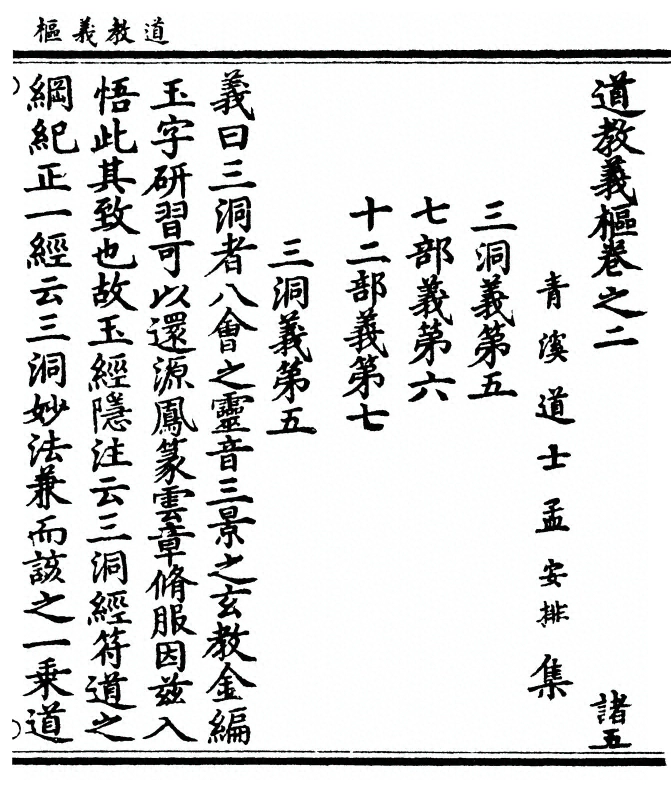 道教義樞
道教義樞卷之二
諸五
青溪道士孟安排集
三洞義第五
七部義第六
十二部義第七
三洞義第五
義曰三洞者八會之靈音三景之玄教金編
玉字研習可以還源鳳篆雲章脩服因兹入
悟此其致也故玉經隱注云三洞經符道之
綱紀正一經云三洞妙法兼而該之一乗道